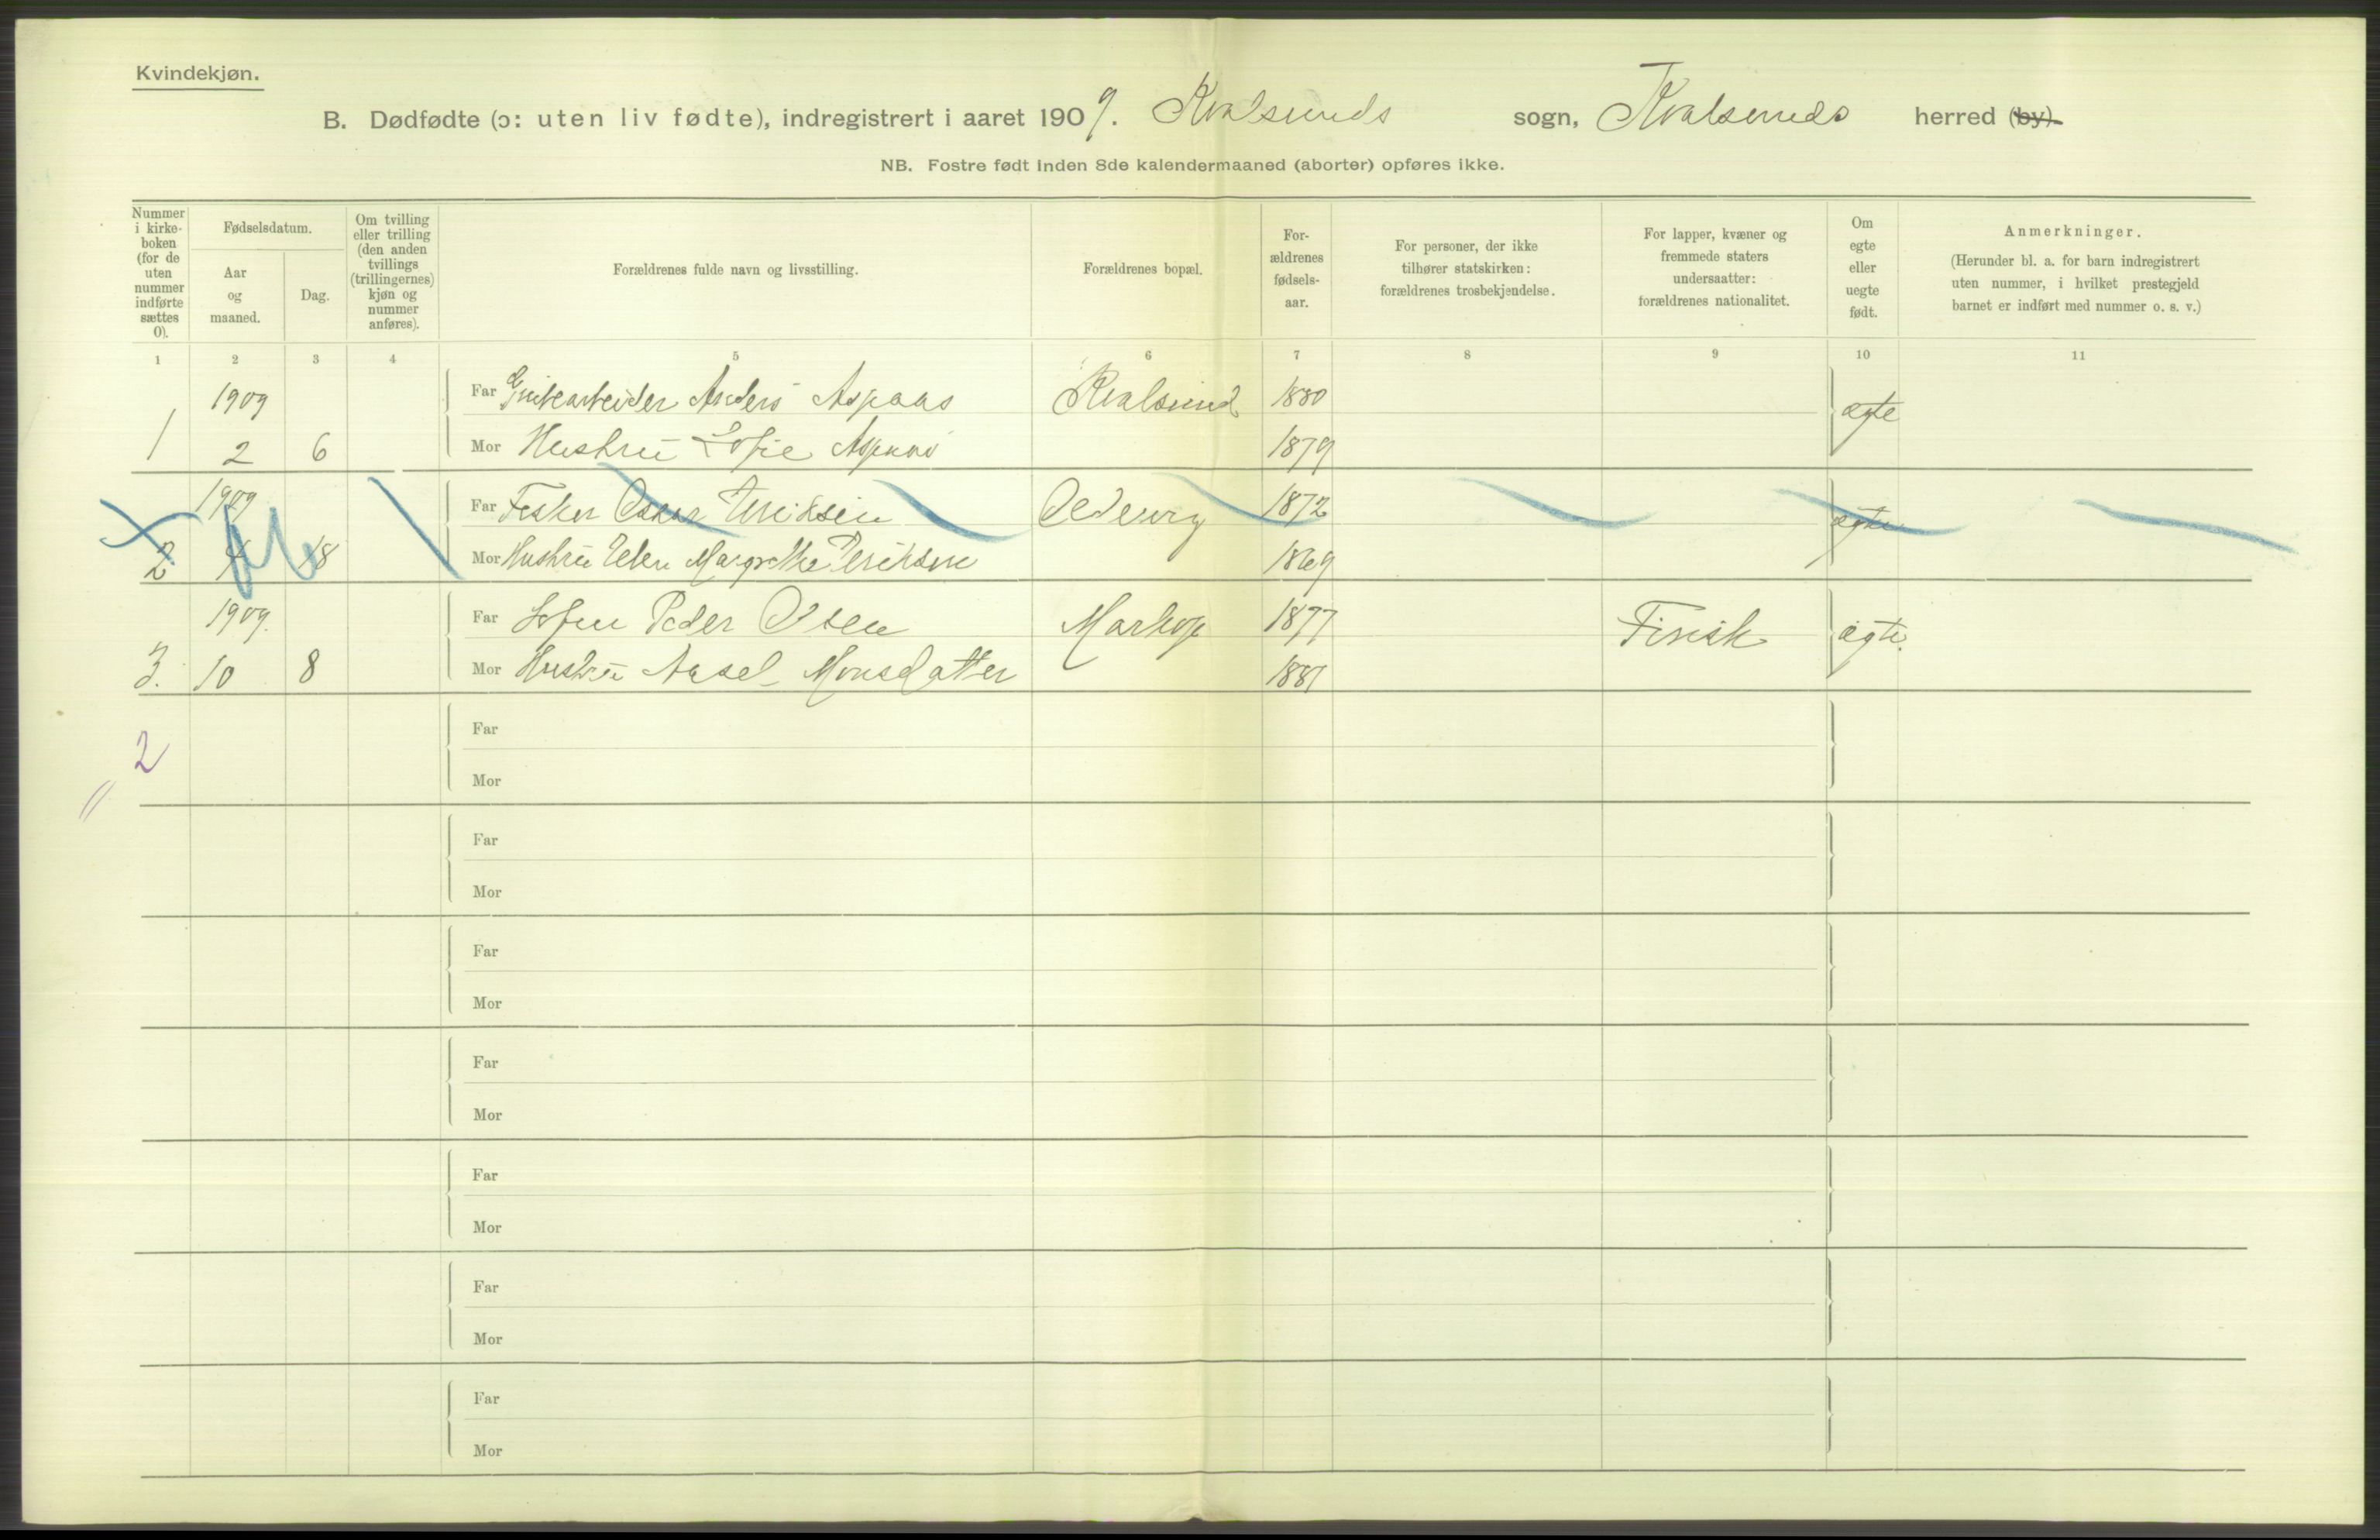 Kvindekjøn.
B. Dødfødte (ɔ: uten liv fødte), indregistrert i aaret 1909. Kvalsunds sogn, Kvalsunds herred (by).
NB. Fostre født inden 8de kalendermaaned (aborter) opføres ikke.
Nummer i kirke-boken (for de uten nummer indførte sættes 0).
Fødselsdatum.
Aar og maaned.
Dag.
Om tvilling eller trilling (den anden tvillings (trillingernes) kjøn og nummer anføres).
Forældrenes fulde navn og livsstilling.
Forældrenes bopæl.
For-ældrenes fødsels-aar.
For personer, der ikke tilhører statskirken: forældrenes trosbekjendelse.
For lapper, kvæner og fremmede staters undersaatter: forældrenes nationalitet.
Om egte eller uegte født.
Anmerkninger.
(Herunder bl. a. for barn indregistrert uten nummer, i hvilket prestegjeld barnet er indført med nummer o. s. v.)
1 2 3 4 5 6 7 8 9 10 11
1909 Far Grubearbeider Anders Aspaas Kvalsund 1880 ægte
1 2 6 Mor Hustru Sofie Aspaas 1879
1909 Far Fisker Oskar Eriksen 1872 ægte
2 4 18 Mor Hustru Elen Margrethe Eriksen 1869
1909. Far Peder Olsen Markop 1877 Finsk ægte.
3. 10 8 Mor Hustru Aasel Monsdatter 1881
Far
2
Mor
Far
Mor
Far
Mor
Far
Mor
Far
Mor
Far
Mor
Far
Mor